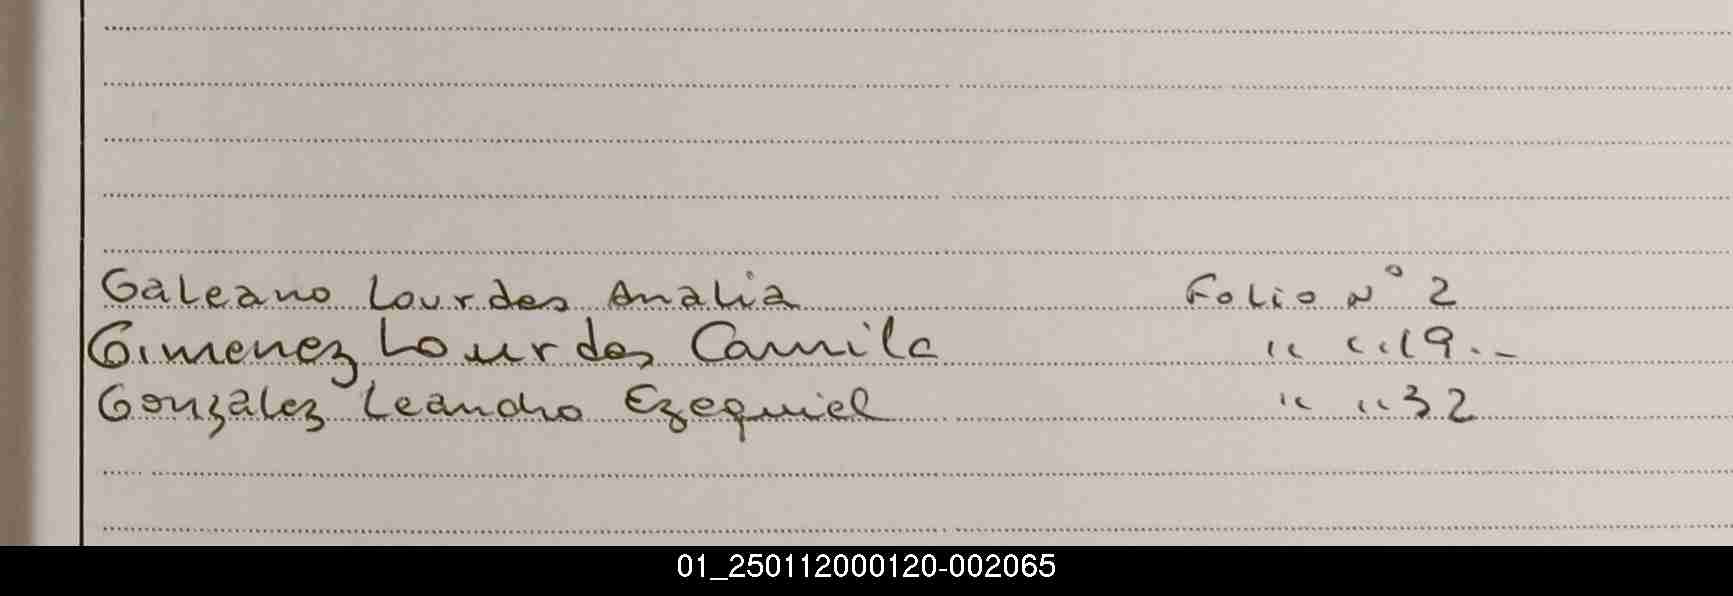 Galeano Lourdes Analia Folio N° 2
Gimenez Lourdes Camila " " 19.-
Gonzalez Leandro Ezequiel " " 32
01_250112000120-002065